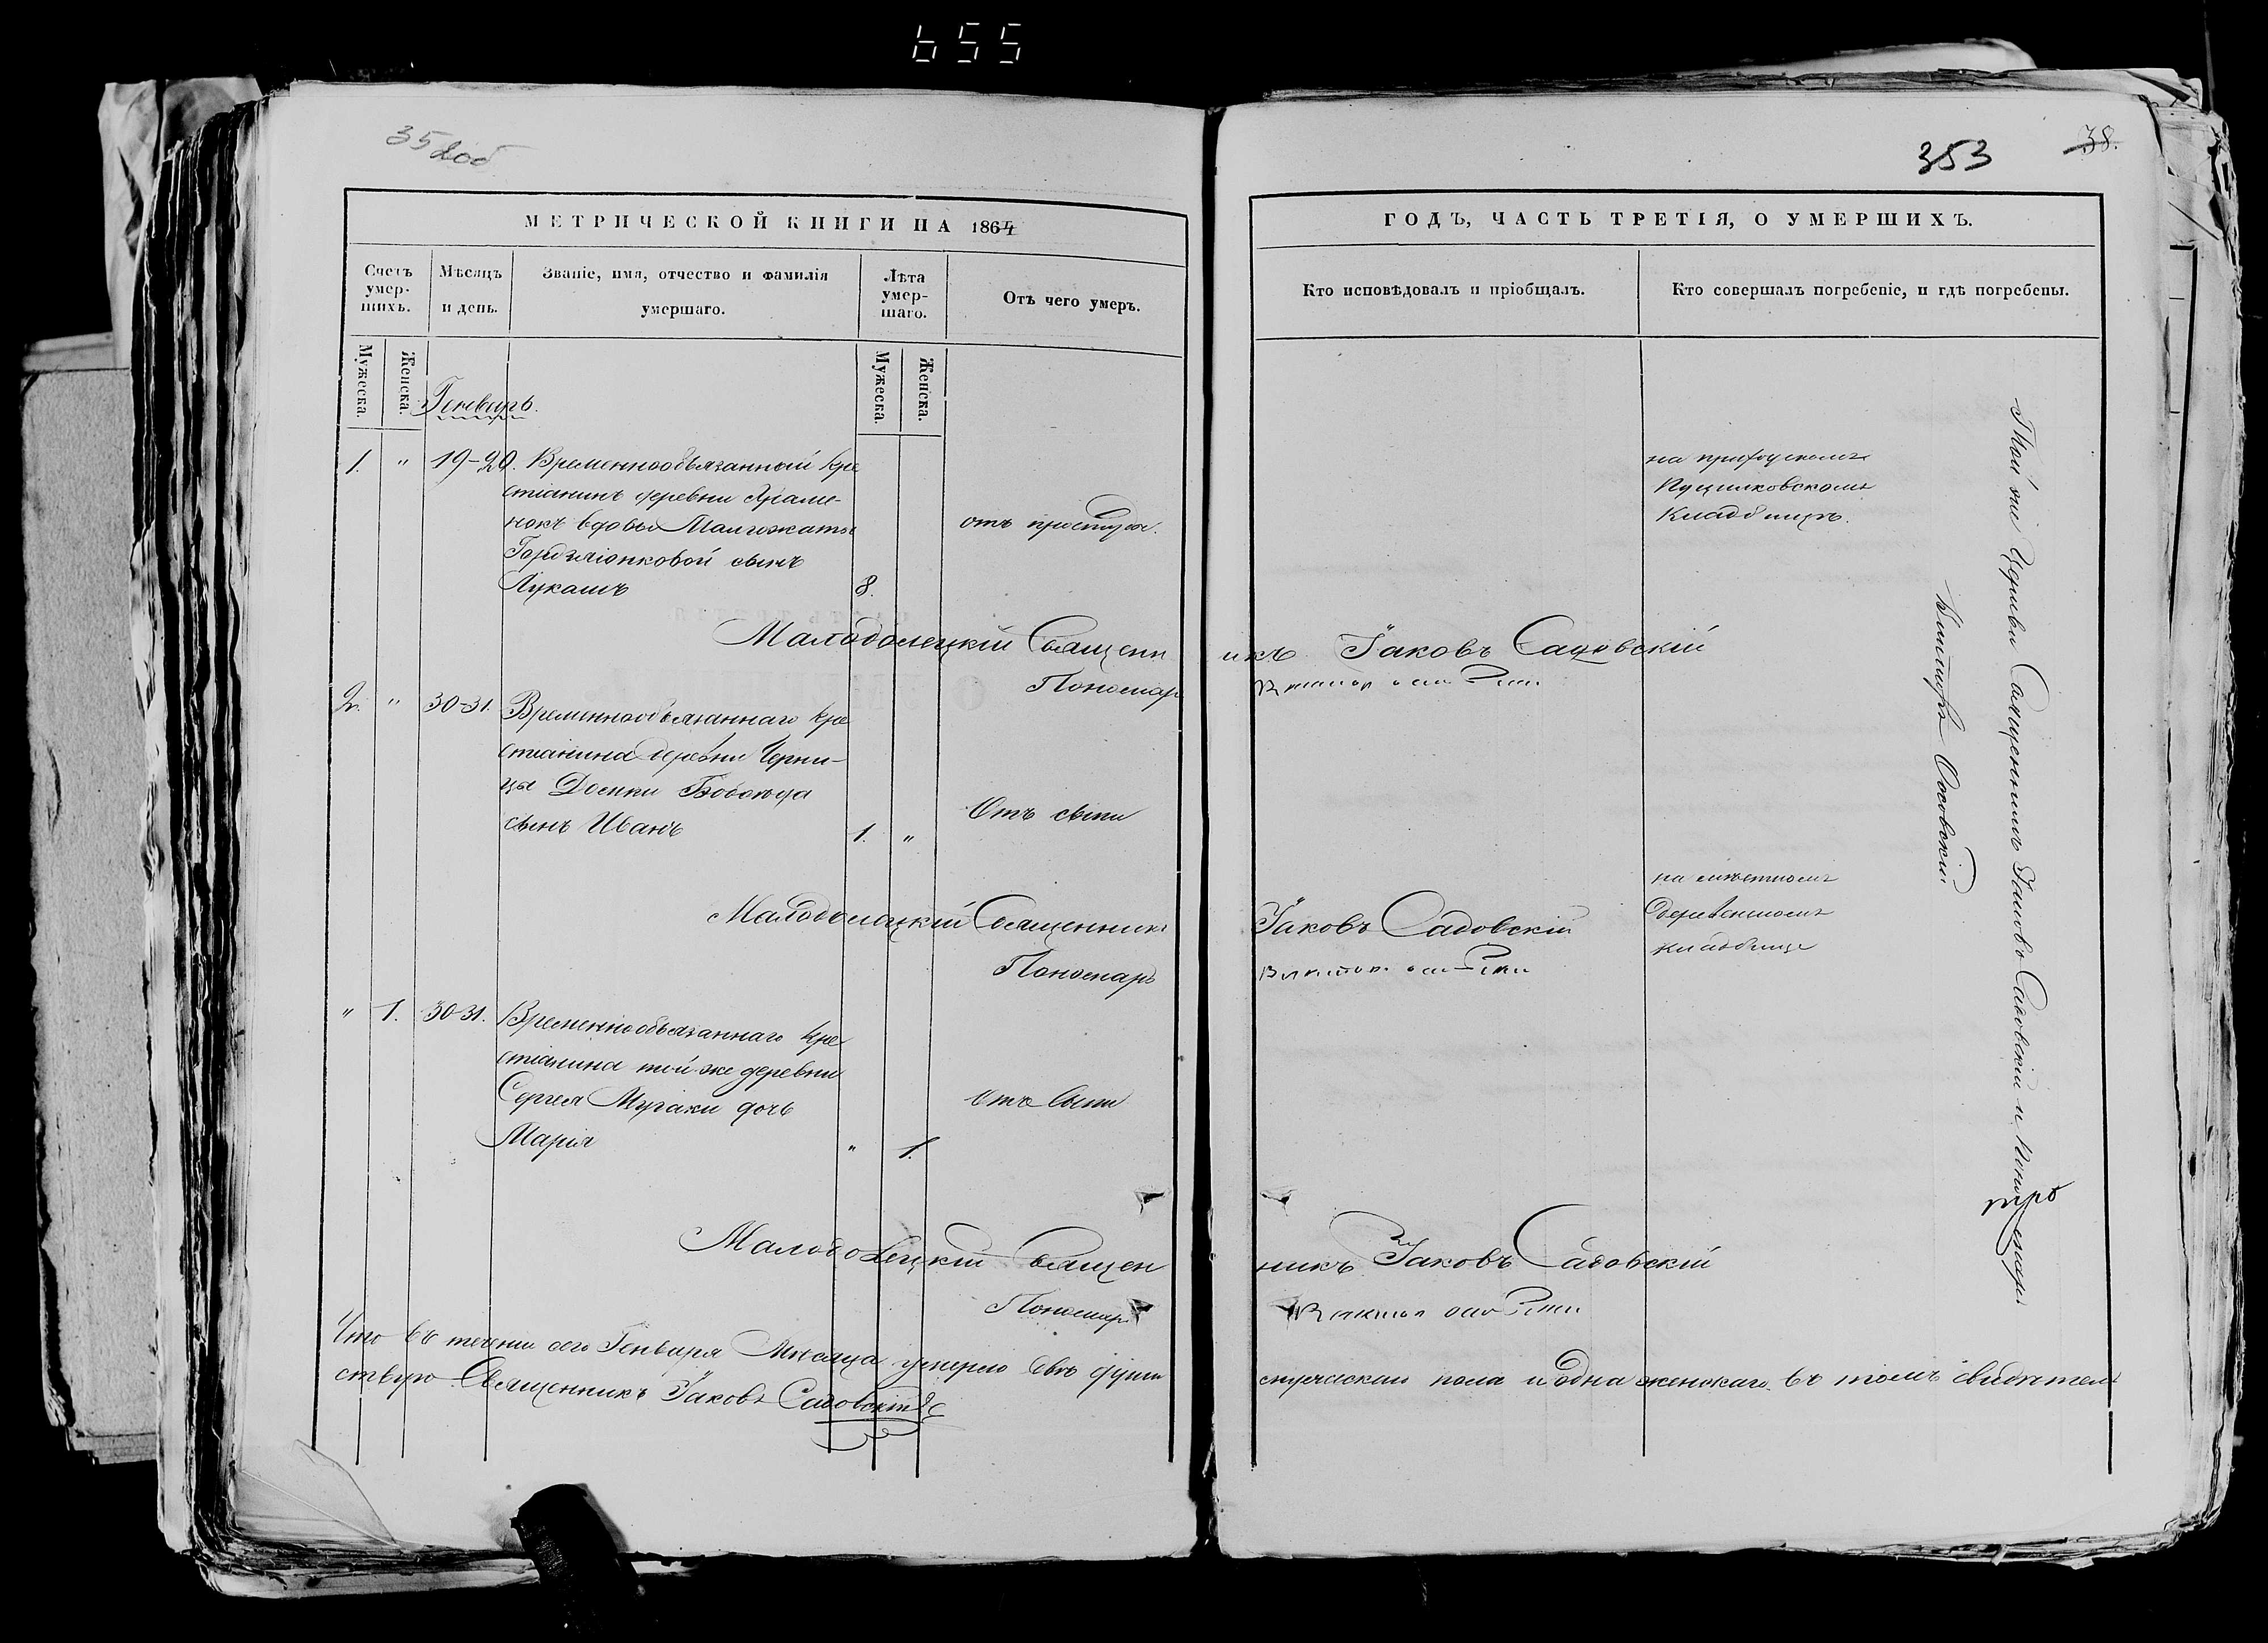 655
353
38.
МЕТРИЧЕСКОЙ КНИГИ НА 1864
ГОДЪ, ЧАСТЬ ТРЕТІЯ, О УМЕРШИХЪ.
Счетъ умер-
шихъ.
Мѣсяцъ
и день.
Званіе, имя, отчество и фамилія
умершаго.
Лѣта
умер-
шаго.
Отъ чего умеръ.
Кто исповѣдовалъ и пріобщалъ.
Кто совершалъ погребеніе, и гдѣ погребены.
Мужеска.
Женска.
Мужеска.
Женска.
Генварь.
1. " 19-20. Временнообязанный кре
стіанинъ деревни
вдовы Малгожаты
сынъ
Лукашъ 8.
отъ простуды.
на приходскомъ
Кладбищѣ.
Малодолецкій Священн
икъ Іаковъ Садовскій
Пономарь
2. " 30-31. Временнообязаннаго кре
стіанина деревни Черни-
цы
сынъ Иванъ 1. "
Отъ сыпи
на мѣстномъ
деревенскомъ
кладбище
Малодолецкій Священникъ
Іаковъ Садовскій
Пономарь
" 1. 30-31. Временнообязаннаго кре
стіанина той-же деревни
Сергея дочь
Марія " 1.
отъ сыпи
Малодолецкій Священ
никъ Іаковъ Садовскій
Пономарь
Что въ теченіи сего Генваря Мѣсяца умерло двѣ души
мужескаго пола и одна женскаго въ томъ свидѣтель
ствую Священникъ Іаковъ Садовскій
Той же Церкви Священникъ Іаковъ Садовскій и Пономарь